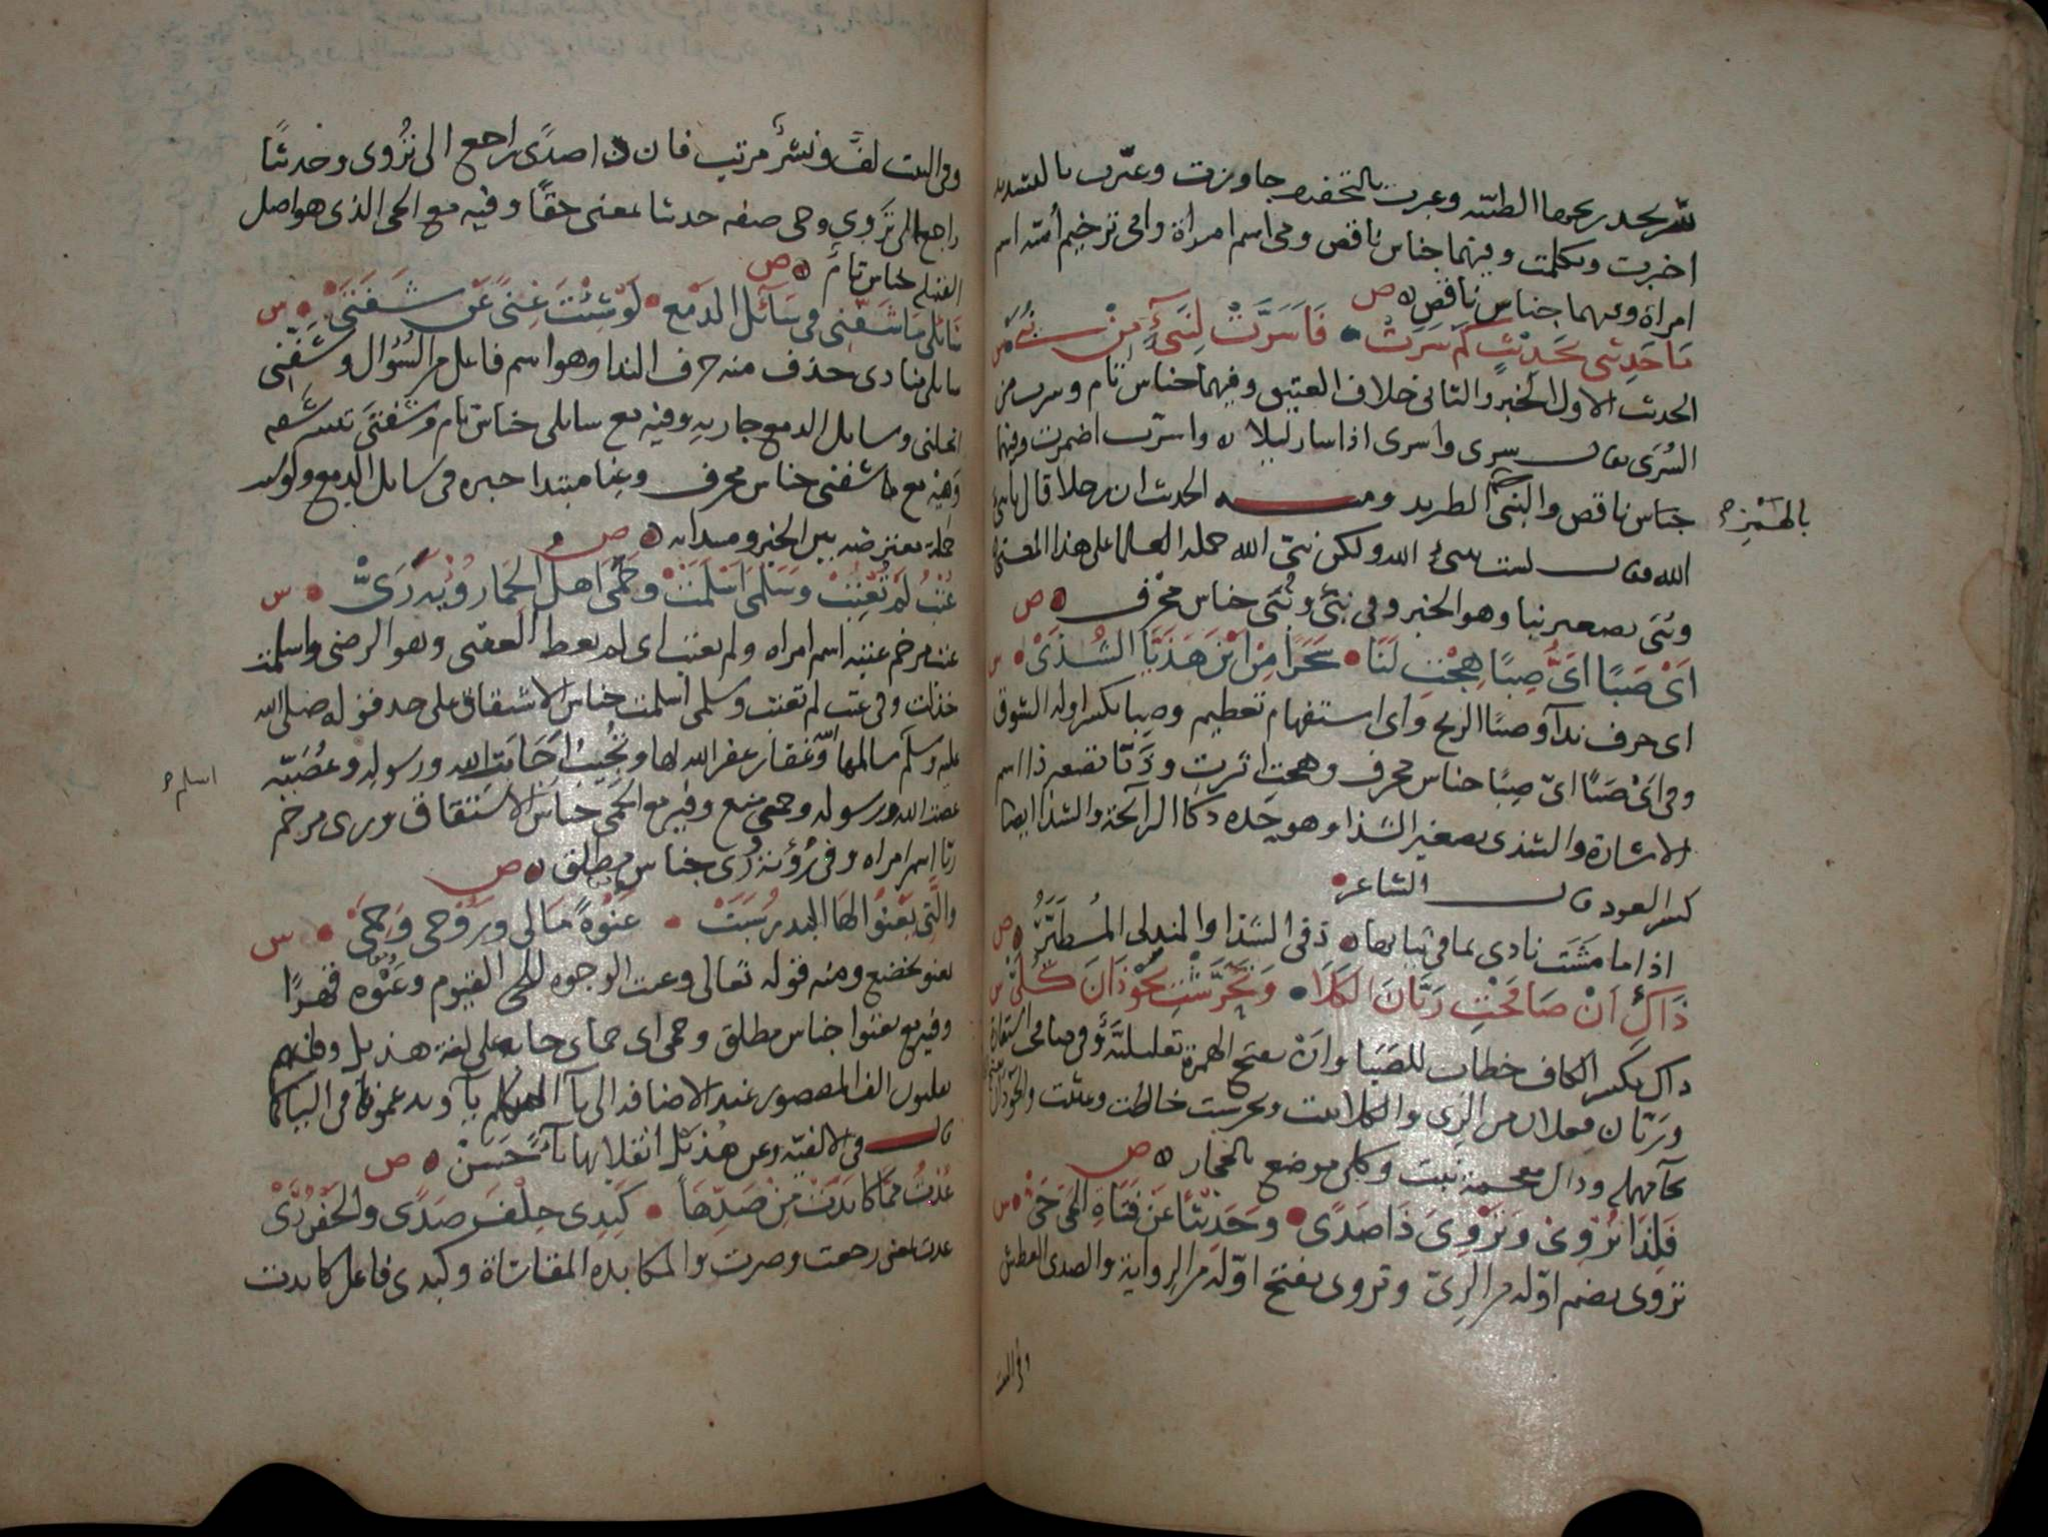 شريحد ريحها الطيبه وعبرت بالتخفيف جاوزت وعبّرت بالتشديد
اخبرت وتكلمت وفيهما جناس ناقص ومى اسم امراة وامى ترخيم أميّه اسم
امراة وفيهما جناس ناقص ص
مَا حَدِيثى بحَدِيْثٍ كَم سَرَتْ • فَاَسَرَّتْ لِنَبِىٍّ مِنْ نُبَىّْ س
الحديث الاول الخبر والثانى خلاف العتيق وفيهما جناس تام وسرت من
السُرَى يقال سرى واسرى اذا سار ليلا ٥ واسرّت اضمرت وفيهما
جناس ناقص والنبى الطريد ومنه الحديث ان رجلا قال يا نبىء
بالهمز صح
الله فقال لست بنبىء الله ولكن نبىّ الله حمله العلما على هذا المعنى
ونبى تصغير نبا وهو الخبر وفى نبىّ ونُبَى جناس محرّف ٥ ص
اَىْ صَبًا اَىُّ صِبًا هِجْتِ لَنَا • سَحَرًا مِنْ اَيْنَ هَذَيَّا الشُذَىْ • س
اى حرف ندآ وصبًا الريح واى استفهام تعظيم وصِبا بكسر اوله الشوق
وفى اَىْ صَبًا اىّ صِبًا جناس محرف وهجت اثرت وذَيّا تصغير ذا اسم
الاشارة والشذى تصغير الشذا وهو حِدة ذكا الرائحة والشذا ايضا
كسر العود قال الشاعر •
اذا ما مَشَت نادى بما فى ثيابها ٥ ذكى الشذا والمندلى المُطَيَّرُ ٥ ص
ذَاكِ اَنْ صَافَحْتِ رَيَّانَ الكَلَا • وَتَحَرَّشْتِ بحَوْذَانَ كُلَىّْ س
ذاك بكسر الكاف خطاب للصَبَا وانْ بفتح الهمزة تعليليّة وفى صافحى استعارة
وريّان فعلان من الرى والكلا نبت وتحرشت خالطت وعبثت والحوذان بفتح
بحآ مهملة وذال معجمة نبت وكلى موضع بالحجاز ٥ ص
فَلِذَا تُرْوِىْ وَتَرْوِىَ ذَا صَدًى • وَحَدِيْثًا عَنْ فَتَاةِ الحَىّ حَىّْ • س
تروى بضم اوّله من الرىّ وتروى بفتح اوّله من الرواية والصدى العطش
وفى البيت
وفى البيت لفّ ونشرٌ مرتب فان ذا صدًى راجع الى تُرْوى وحديثًا
راجع الى تَروى وحى صفة حديثا بمعنى حقًا وفيه مع الحى الذى هو اصل
القبيلة جناس تام ٥ ص
سَائلى مَا شَفّنِى فى سَآئل الدمْع • لَوْ شِئْتَ غِنًى عَنْ شَفَتَىّْ • س
سايلى منادى حذف منه حرف الندا وهو اسم فاعل من السُؤال وشَفّنى
انحلنى وسايل الدمع جاريه وفيه مع سايلى جناس تام وشفتىّ تثنية شفه
وفيه مع ما شفنى جناس محرف وغِنا مبتدا خبره فى سايل الدمع ولو شئت
جملة معترضه بين الخبر ومبتدائه ٥ ص
عُتْبُ لَمْ تُعْتِبْ وَسَلْمَى اَسْلَمَتْ • وَحَمَى اَهْلُ الحِمَا رُوْيَةَ رَىّْ • س
عتب مرخم عتبه اسم امراه ولم تعتب اى لم تعط العتبى وهو الرضى واسلمت
خذلت وفى عتب لم تعتب وسلمى اسلمت جناس الاشتقاق على حد قوله صلى الله
عليه وسلم سالمها الله وغفار غفر الله لها وتُجيبُ اَجَابَت الله ورسوله وعُصَيّه
اسلم صح
عصت الله ورسوله وحمى منع وفيه مع الحمى جناس الاشتقاق ورى مرخم
ريّا اسم امراه وفى رُؤية رى جناس مطلق ٥ ص
والَّتِى يَعْنُوا لهَا البدر سَبَتْ • عَنْوةً مَالى وَرُوْحِى وَحِمَىّْ • س
يعنو يخضع ومنه قوله تعالى وعنت الوجوه للحى القيوم وعَنْوة قهرًا
وفيه مع يعنوا جناس مطلق وحمى اى حماى جا به على لغة هذيل وفانهم
يقلبون الف المقصور عند الاضافه الى يآ المتكلم يآ ويدغمونها فى اليا كما
قال فى الالفيّة وعن هذيل انقلابها يآءً حَسَنْ ٥ ص
عُدْتُ مِمّا كابَدَتْ مِنْ صَدِّهَا • كَبِدِى حِلْفَ صَدًى والجَفْنُ رَىّْ
عدت بمعنى رجعت وصرت والمكابده المقاساة وكبدى فاعل كابدت